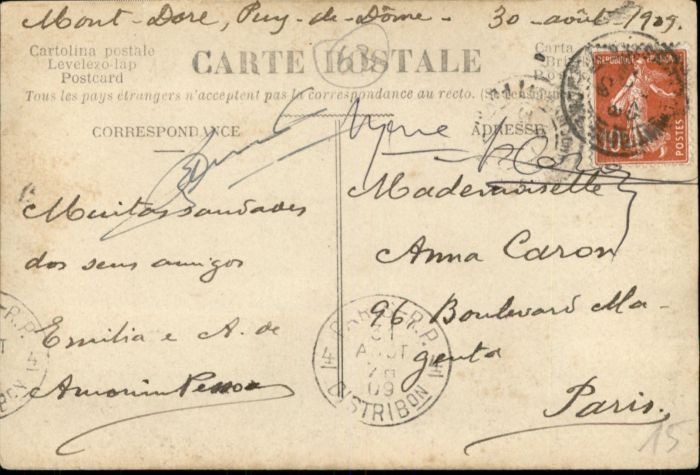 Mont-Dore, Puy-de-Dôme - 30 - août - 1909.
Cartolina postale
Levelezo-lap
Postcard
CARTE POSTALE
163
Carta
Tous les pays étrangers n'acceptent pas la correspondance au recto.
CORRESPONDANCE
ADRESSE
Muitas saudades
dos seus amigos
Emilia e A. de
Amorim Pessoa
Mademoiselle
Anna Caron
96 Boulevard Ma-
genta
Paris.
PARIS R.P.
31
AOUT
09
DISTRIBON
REPUBLIQUE
10
POSTES
R.P.
15